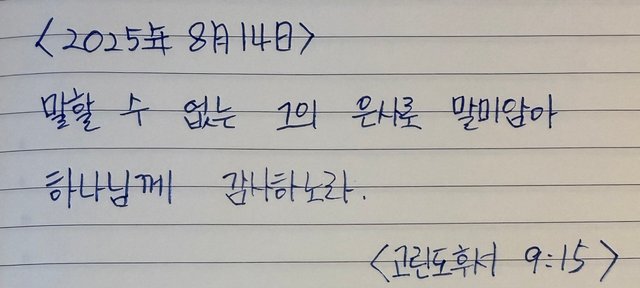 <2025年 8月 14日>
말할 수 없는 그의 은사로 말미암아
하나님께 감사하노라.
<고린도후서 9:15>